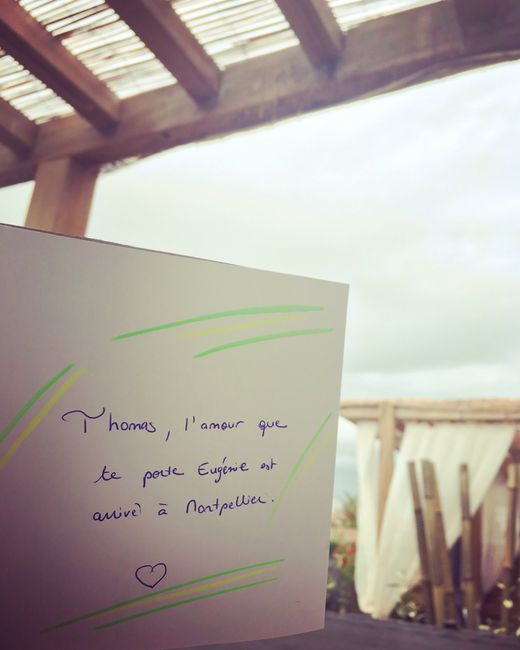 Thomas, l'amour que
te porte Eugénie est
arrivé à Montpellier.